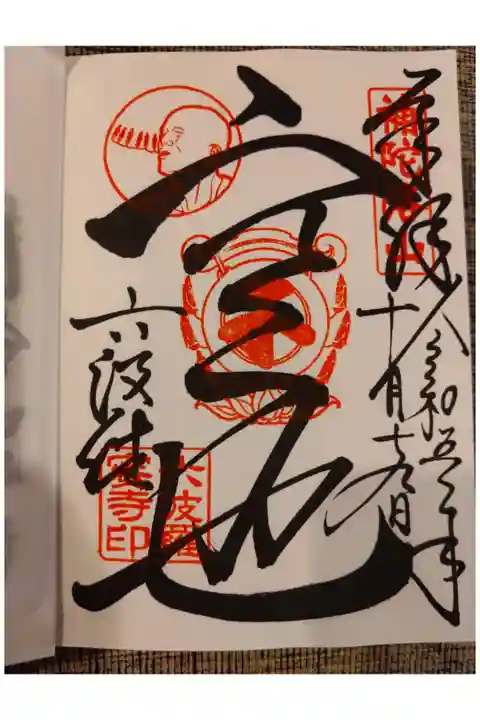 奉拝
補陀洛山
令和五年
十月十九日
空也
六波羅
六波羅
蜜寺印